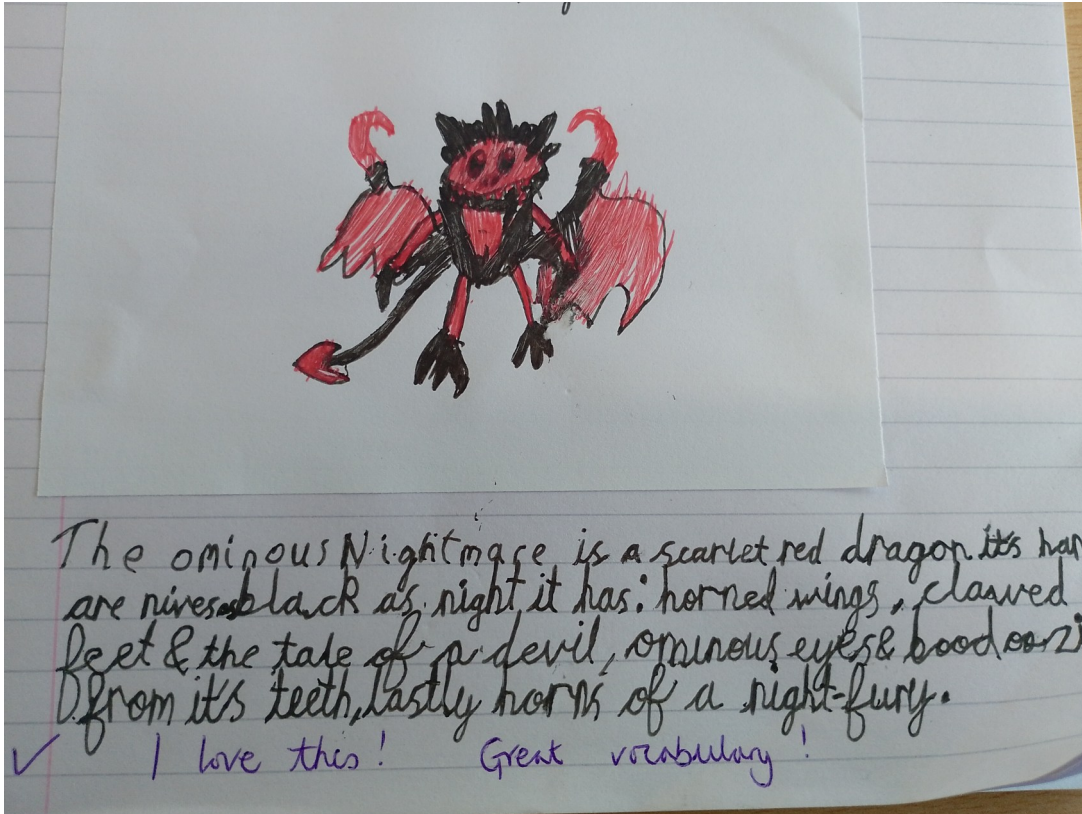 The ominous Nightmare is a scarlet red dragon. it's
are as black as night, it has: horned wings, clawed
feet & the tale of a devil, ominous eyes &
from it's teeth, lastly horns of a night-fury.
✓ I love this! Great vocabulary!